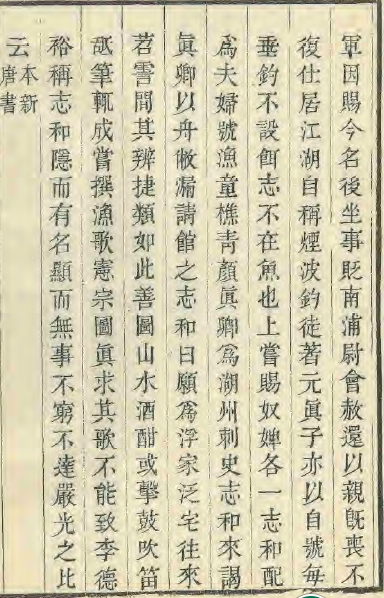 軍因賜今名後坐事貶南浦尉會赦還以親旣喪不
復仕居江湖自稱煙波釣徒著元眞子亦以自號每
垂釣不設餌志不在魚也上嘗賜奴婢各一志和配
爲夫婦號漁童樵青顏眞卿爲湖州刺史志和來謁
眞卿以舟敝漏請館之志和曰願爲浮家泛宅往來
苕霅間其辨捷類如此善圖山水酒酣或擊鼓吹笛
舐筆輒成嘗撰漁歌憲宗圖眞求其歌不能致李德
裕稱志和隱而有名顯而無事不窮不達嚴光之比
云本新唐書